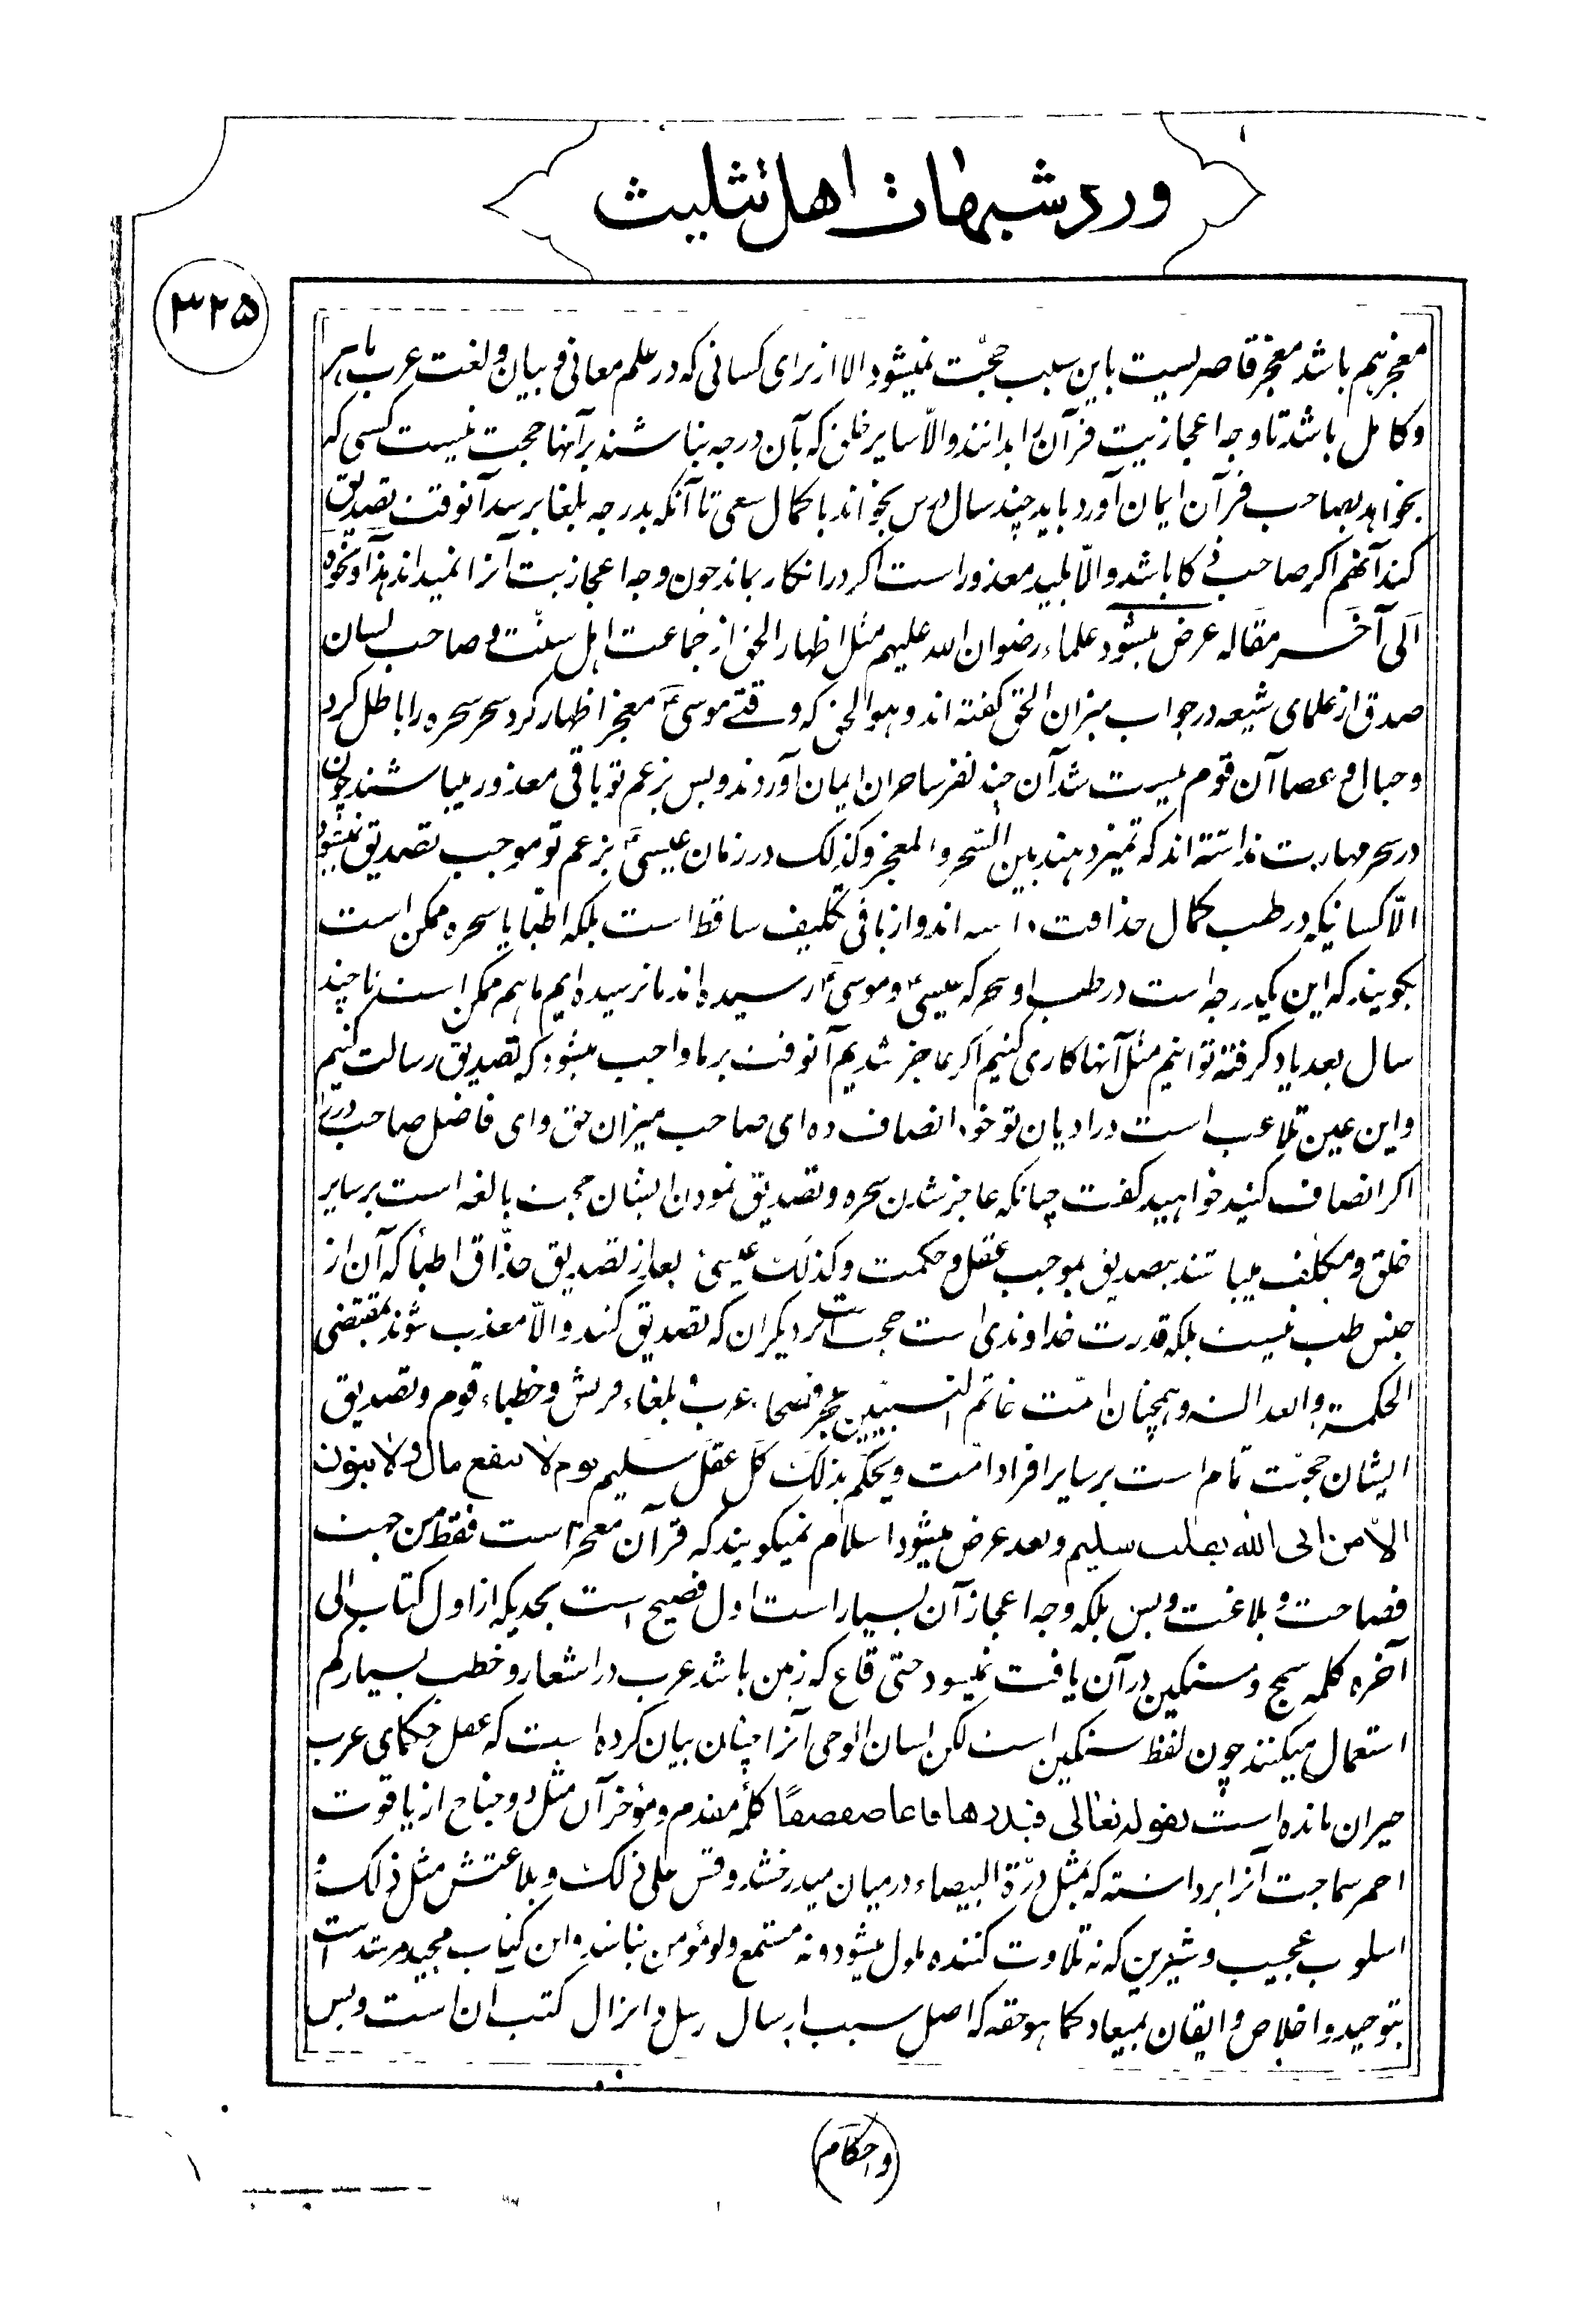 ورد شبهات اهل تثلیث
۳۲۵
معجز هم باشد معجز قاصریست باین سبب حجّت نمیشود الا از برای کسانی که در علم معانی و بیان و لغت عرب ماهر
و کامل باشد تا وجه اعجازیت قرآن را بدانند والّا سایر خلق که بآن درجه نباشند برآنها حجت نیست کسی که
بخواهد بصاحب قرآن ایمان آورد باید چند سال درس بخواند با کمال سعی تا آنکه بدرجه بلغا برسد آنوقت تصدیق
کند آنهم اگر صاحب ذکا باشد والّا بلید معذور است اگر در انکار بماند چون وجه اعجازیت آنرا نمیداند هذا و نحوه
الی آخر مقاله عرض میشود علماء رضوان الله علیهم مثل اظهار الحق از جماعت اهل سنّت و صاحب لسان
صدق از علمای شیعه در جواب میزان الحق گفته اند و هو الحق که وقتے موسیؑ معجز اظهار کرد سحر سحره را باطل کرد
و حبال و عصا آن قوم شد آن چند نفر ساحران ایمان آوردند و بس بزعم تو باقی معذور میباشند چون
در سحر مهارت نداشته اند که تمیز دهند بین السّحر و المعجز و کذلک در زمان عیسیؑ بزعم تو موجب تصدیق نمیشود
الّا کسانیکه در طب کمال حذاقت داشته اند و از باقی تکلیف ساقط است بلکه اطبّا یا سحره ممکن است
بگویند که این یکدرجه است در طب و سحر که عیسیؑ و موسیؑ رسیده اند ما نرسیده ایم ما هم ممکن است تا چند
سال بعد یاد گرفته توانیم مثل آنها کاری کنیم اگر عاجز شدیم آنوقت بر ما واجب میشود که تصدیق رسالت کنیم
و این عین تلاعب است در ادیان تو خود انصاف ده ای صاحب میزان حق و ای فاضل صاحب
اگر انصاف کنید خواهید گفت چنانکه عاجز شدن سحره و تصدیق نمودن ایشان حجت بالغه است بر سایر
خلق و مکلّف میباشند بتصدیق بموجب عقل و حکمت و کذلک عیسیؑ بعد از تصدیق حذّاق اطبّا که آن از
جنس طب نیست بلکه قدرت خداوندی است حجت است بر دیگران که تصدیق کنند والّا معذب شوند بمقتضی
الحکمة والعدالة و همچنان امّت خاتم النبیّین عجز فصحاء عرب و بلغاء قریش و خطباء قوم و تصدیق
ایشان حجّت تام است بر سایر افراد امّت و یحکم بذلک کل عقل سلیم یوم لا ینفع مال ولا بنون
الّا من اتی الله بقلب سلیم و بعد عرض میشود اسلام نمیگویند که قرآن معجز است فقط من جهت
فصاحت و بلاغت و بس بلکه وجه اعجاز آن بسیار است اول فصیح است بحدیکه از اول کتاب الی
آخره کلمه سمج و سنگین در آن یافت نمیشود حتی قاع که زمین باشد عرب در اشعار و خطب بسیار کم
استعمال میکنند چون لفظ سنگین است لکن لسان الوحی آنرا چنان بیان کرده است که عقل حکمای عرب
حیران مانده است بقوله تعالی فیذرها قاعا صفصفًا کلمهٔ مقدم و مؤخر آن مثل دو جناح از یاقوت
احمر سماجت آنرا برداشته که بمثل درّة البیضاء در میان میدرخشد و قس علی ذلک و بلاغتش مثل ذلک و
اسلوب عجیب و شیرین که نه تلاوت کننده ملول میشود و نه مستمع ولو مؤمن نباشد و این کتاب مجید مرشد است
بتوحید و اخلاص و ایقان بمیعاد کما هو حقه که اصل سبب ارسال رسل و انزال کتب آن است و بس
(و احکام)